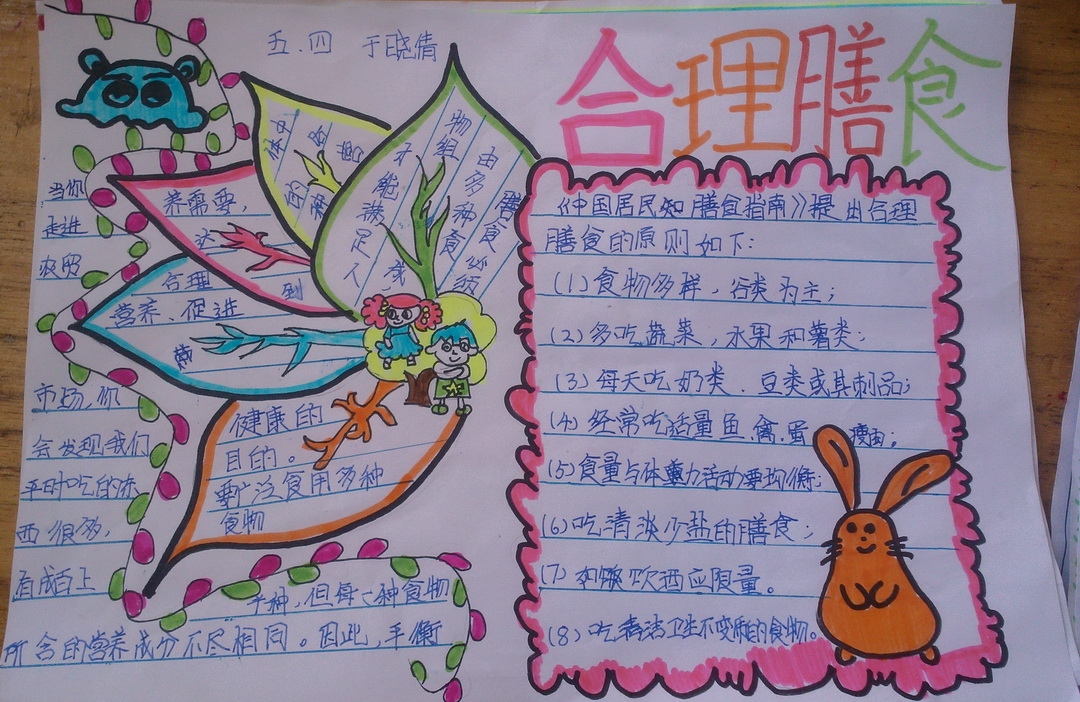 五.四 于晓倩
合理膳食
当你
走进
市场，你
会发现我们
平时吃的东
西很多，
有成百上
千种，但每一种食物
所含的营养成分不尽相同。因此，平衡
膳食必须
由多种食
物组
才能满足人
的
养需要，
达
到
合理
营养、促进
健康的
目的。
要广泛食用多种
食物
《中国居民知膳食指南》提出合理
膳食的原则如下：
(1)食物多样，谷类为主；
(2)多吃蔬菜，水果和薯类；
(3)每天吃奶类、豆类或其制品；
(4)经常吃适量鱼、禽、蛋、瘦肉；
(5)食量与体力活动要均衡；
(6)吃清淡少盐的膳食；
(7)如饮酒应限量。
(8)吃清洁卫生不变质的食物。